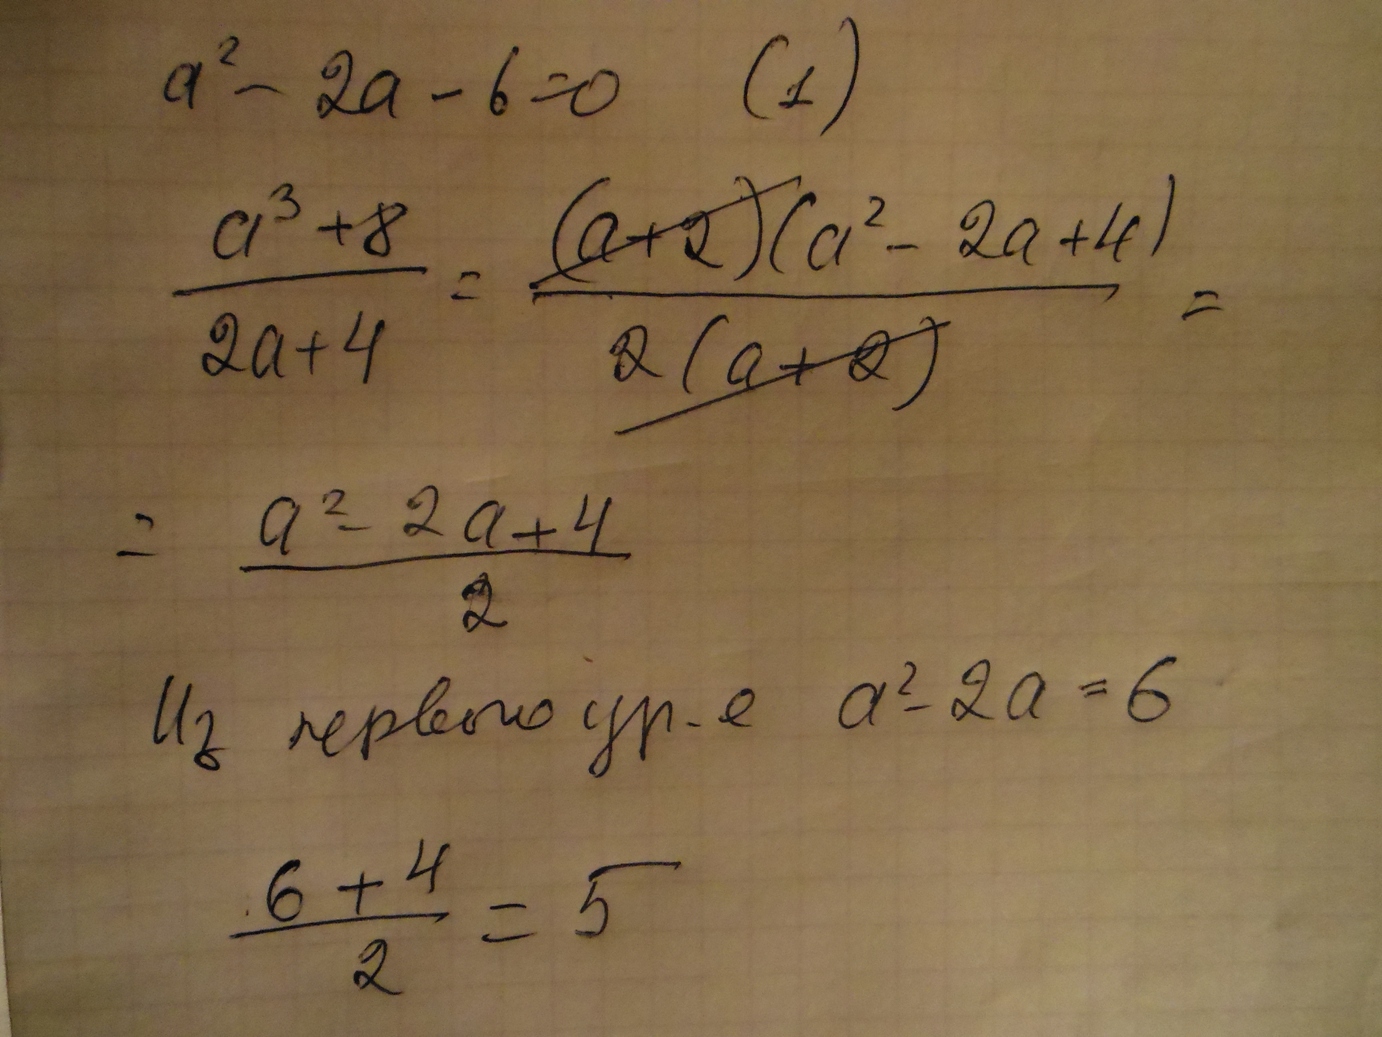 a² - 2a - 6 = 0 (1)
(a³ + 8)/(2a + 4) = ((a + 2)(a² - 2a + 4))/(2(a + 2)) =
= (a² - 2a + 4)/2
Из первого ур-е a² - 2a = 6
(6 + 4)/2 = 5